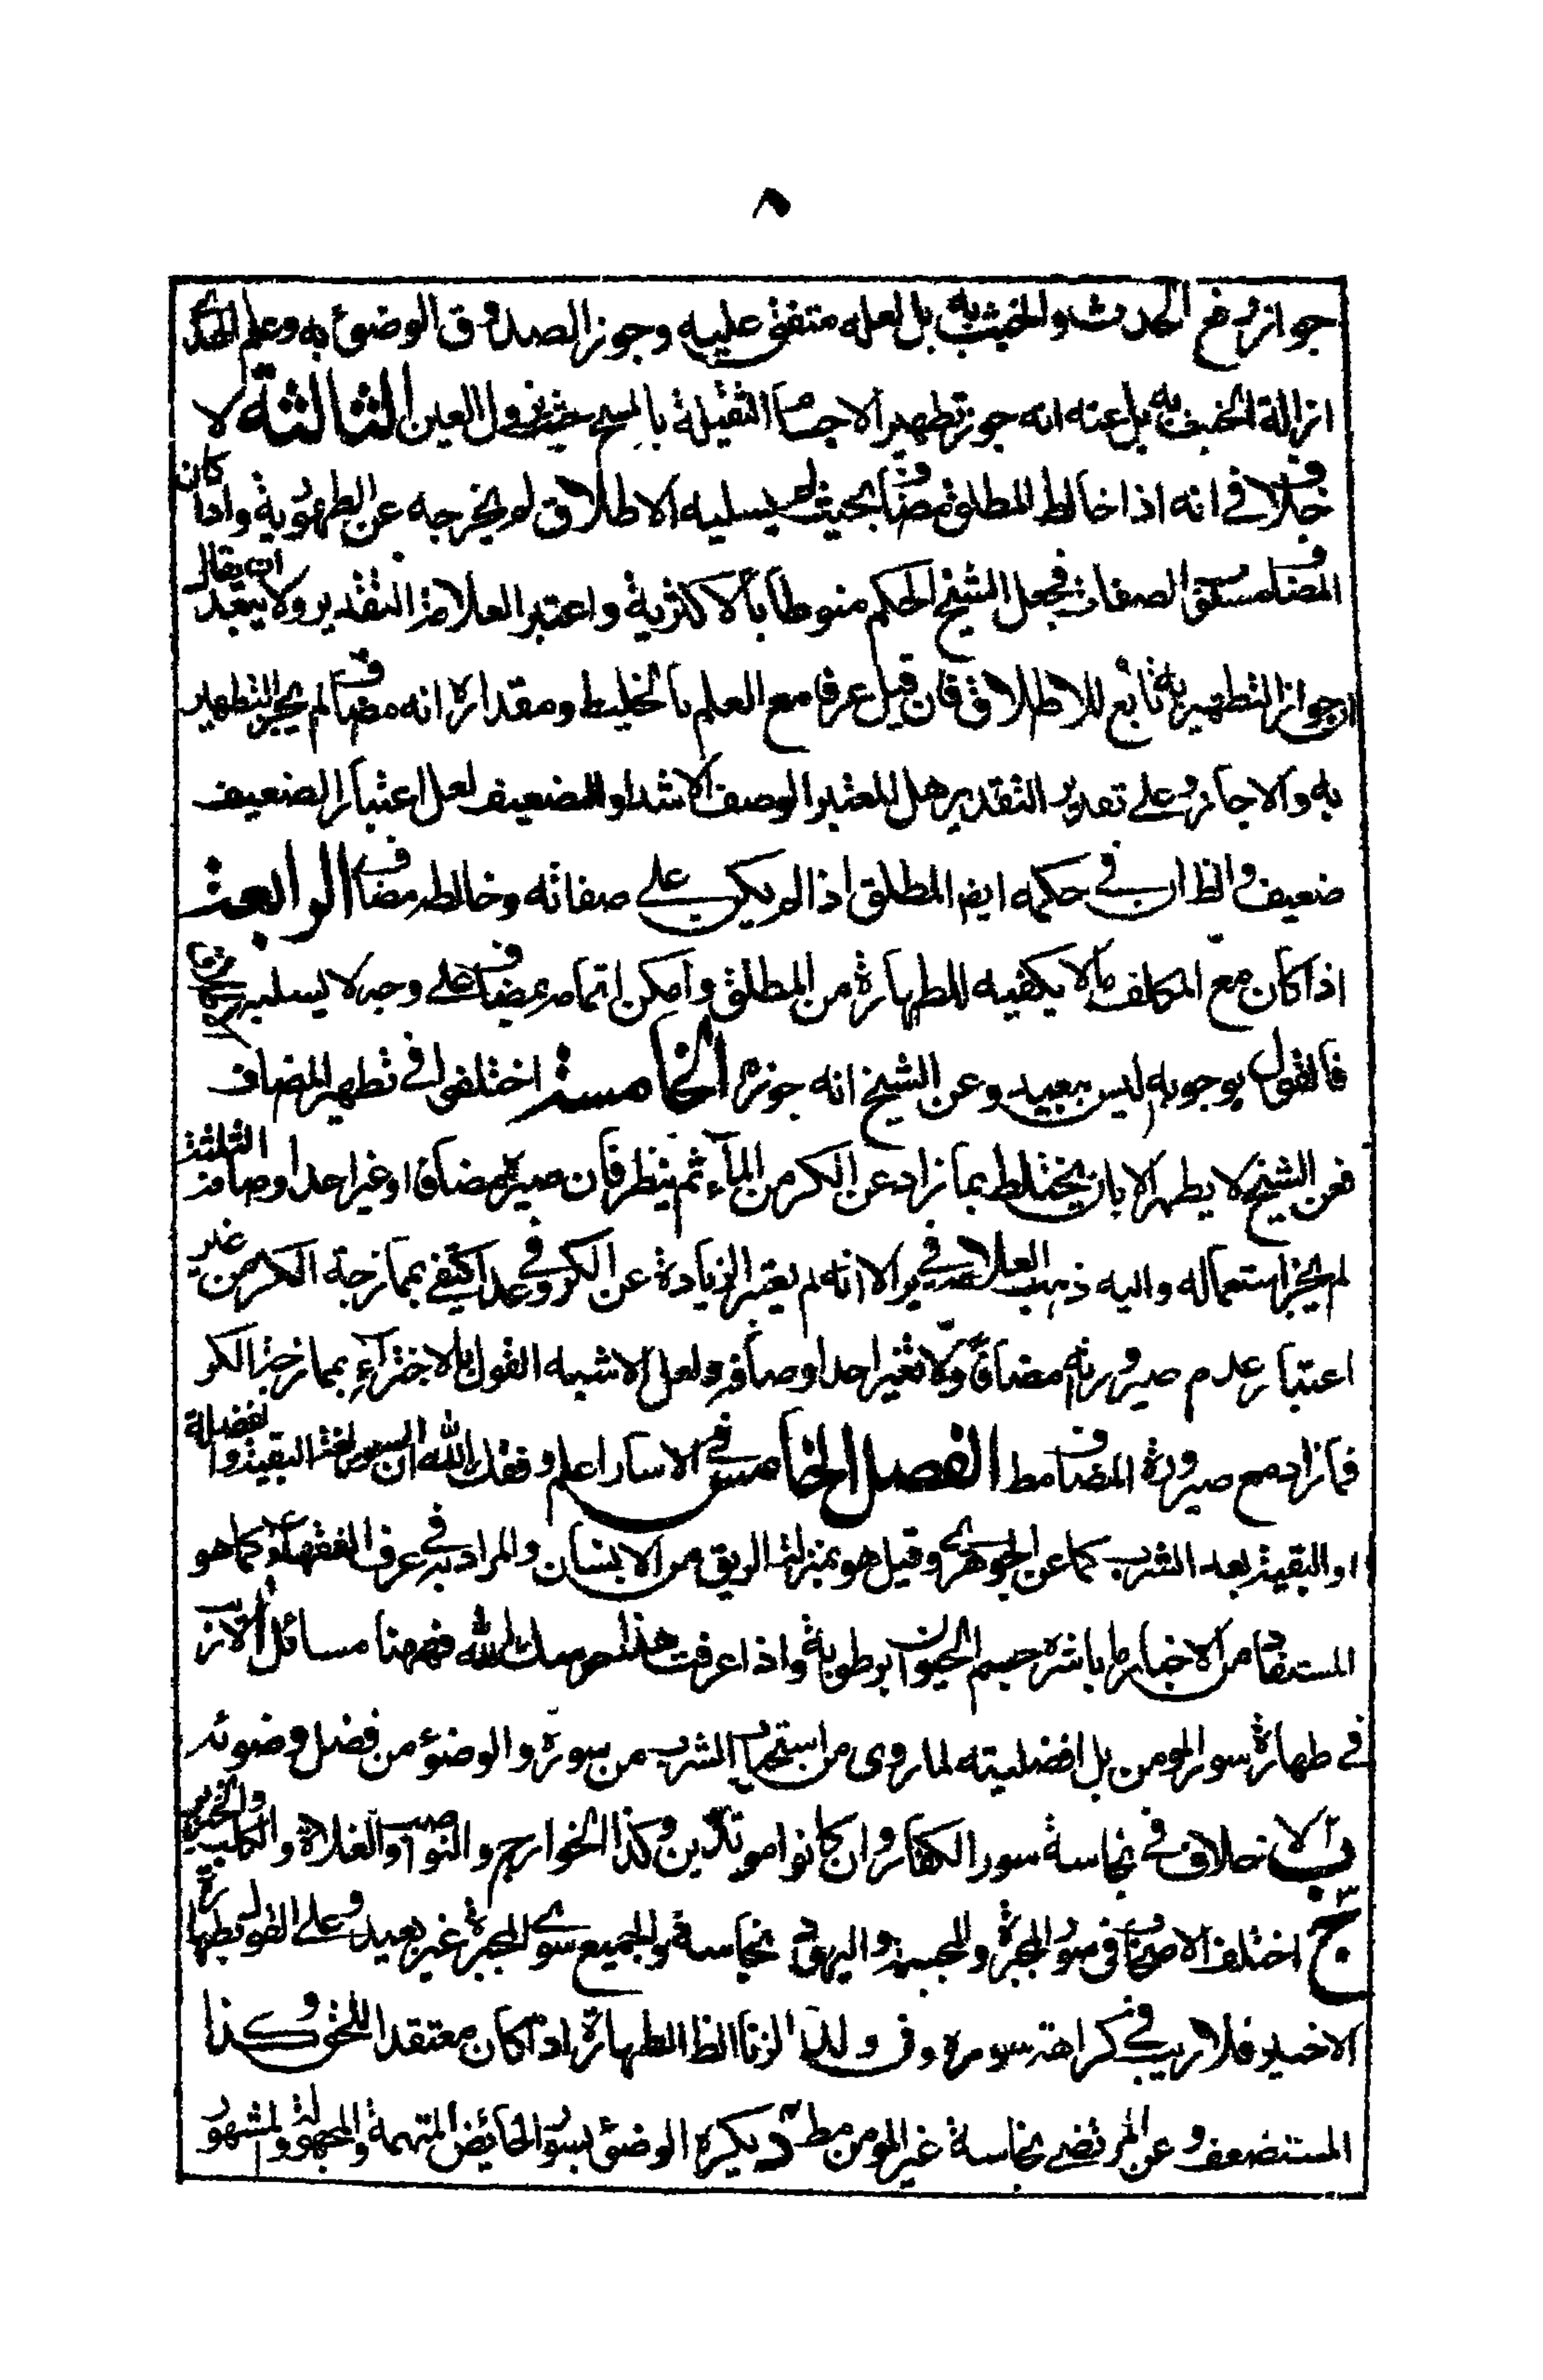 ٨
جواز رفع الحدث والخبث به بل لعله متفق عليه وجوز الصدوق الوضوء به وعلم الهدى
ازالة الخبث به بل عنه انه جوز تطهير الاجسام الثقيلة بالمسح حيث يزول العين الثالثة لا
خلاف في انه اذا خالط المطلق مضاف بحيث لم يسلبه الاطلاق لم يخرجه عن الطهورية واذا كان
المضاف مسلوق الصفات فجعل الشيخ الحكم منوطا بالاكثرية واعتبر العلامة التقدير ولا يبعد ان يقال
ان جواز التطهير به تابع للاطلاق فان قيل عرفا مع العلم بالخليط ومقداره انه مضاف لم يجز التطهير
به والا جاز وعلى تقدير التقدير هل المعتبر الوصف الاشد او الضعيف لعل اعتبار الضعيف
ضعيف والظ ان في حكمه ايض المطلق اذا لم يكن على صفاته وخالطه مضاف الرابعة
اذا كان مع المكلف ما لا يكفيه للطهارة من المطلق وامكن اتمامه بمضاف على وجه لا يسلبه
فالقول بوجوبه ليس ببعيد وعن الشيخ انه جوزه الخامسة اختلفوا في تطهير المضاف
فعن الشيخ لا يطهر الا بان يختلط بما زاد عن الكر من الماء ثم ينظر فان صيره مضافا او غير احد اوصافه الثلثة
لم يجز استعماله واليه ذهب العلامة في ير الا انه لم يعتبر الزيادة عن الكر وفي عد اكتفى بممازجة الكر من غير
اعتبار عدم صيرورته مضافا ولا تغير احد اوصافه ولعل الاشبه القول بالاجتزاء بممازجة الكر
فما زاد مع صيرورة المضاف مط الفصل الخامس في الاسار اعلم وفقك الله ان السور لغة البقية والفضلة
او البقية بعد الشرب كما عن الجوهري وقيل هو بمنزلة الريق من الانسان والمراد به في عرف الفقهاء كما هو
المستفاد من الاخبار ما باشره جسم الحيوان برطوبة واذا عرفت هذا حرسك الله فههنا مسائل لا ريب
في طهارة سور المومن بل افضليته لما روى من استحباب الشرب من سوره والوضوء من فضل وضوئه
ب لا خلاف في نجاسة سور الكفار وان كانوا مرتدين وكذا الخوارج والنواصب والغلاة والكلب والخنزير
ج اختلف الاصحاب في سور المجبرة والمجسمة واليهود نجاسة الجميع سوى المجبرة غير بعيد وعلى القول بطهارة
الاخير فلا ريب في كراهة سوره وفي ولد الزنا الظ الطهارة اذا كان معتقدا للحق وكذا
المستضعف وعن المرتضى نجاسة غير المومن مط د يكره الوضوء بسور الحائض المتهمة والمجهولة والمشهور